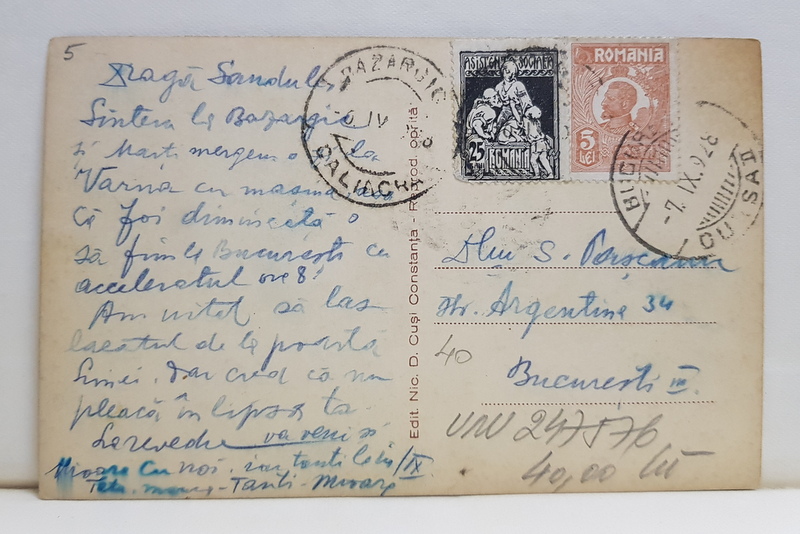 5
Dragă Sandule
Suntem la Bazargic
și Marți mergem o la
Varna cu mașina, așa
că foi dimineață o
să fim la București cu
acceleratul ore 8!
Am uitat să las
lacătul de la portiță
Linei. Dar cred că nu
pleacă în lipsa ta.
La revedre va veni și
Mioara cu noi. iar tanti Lelia /IX
Tanti Mioara
Edit. Nic. D. Cuși Constanța - Reprod. oprită
BAZARGIC
-6.IV
CALIACRA
ASISTENȚA SOCIALĂ
25
ROMANIA
ROMANIA
5
LEI
-7.IX.928
Dlui S.
Str. Argentina 34
București III
40
UNU 247576
40,00 lei